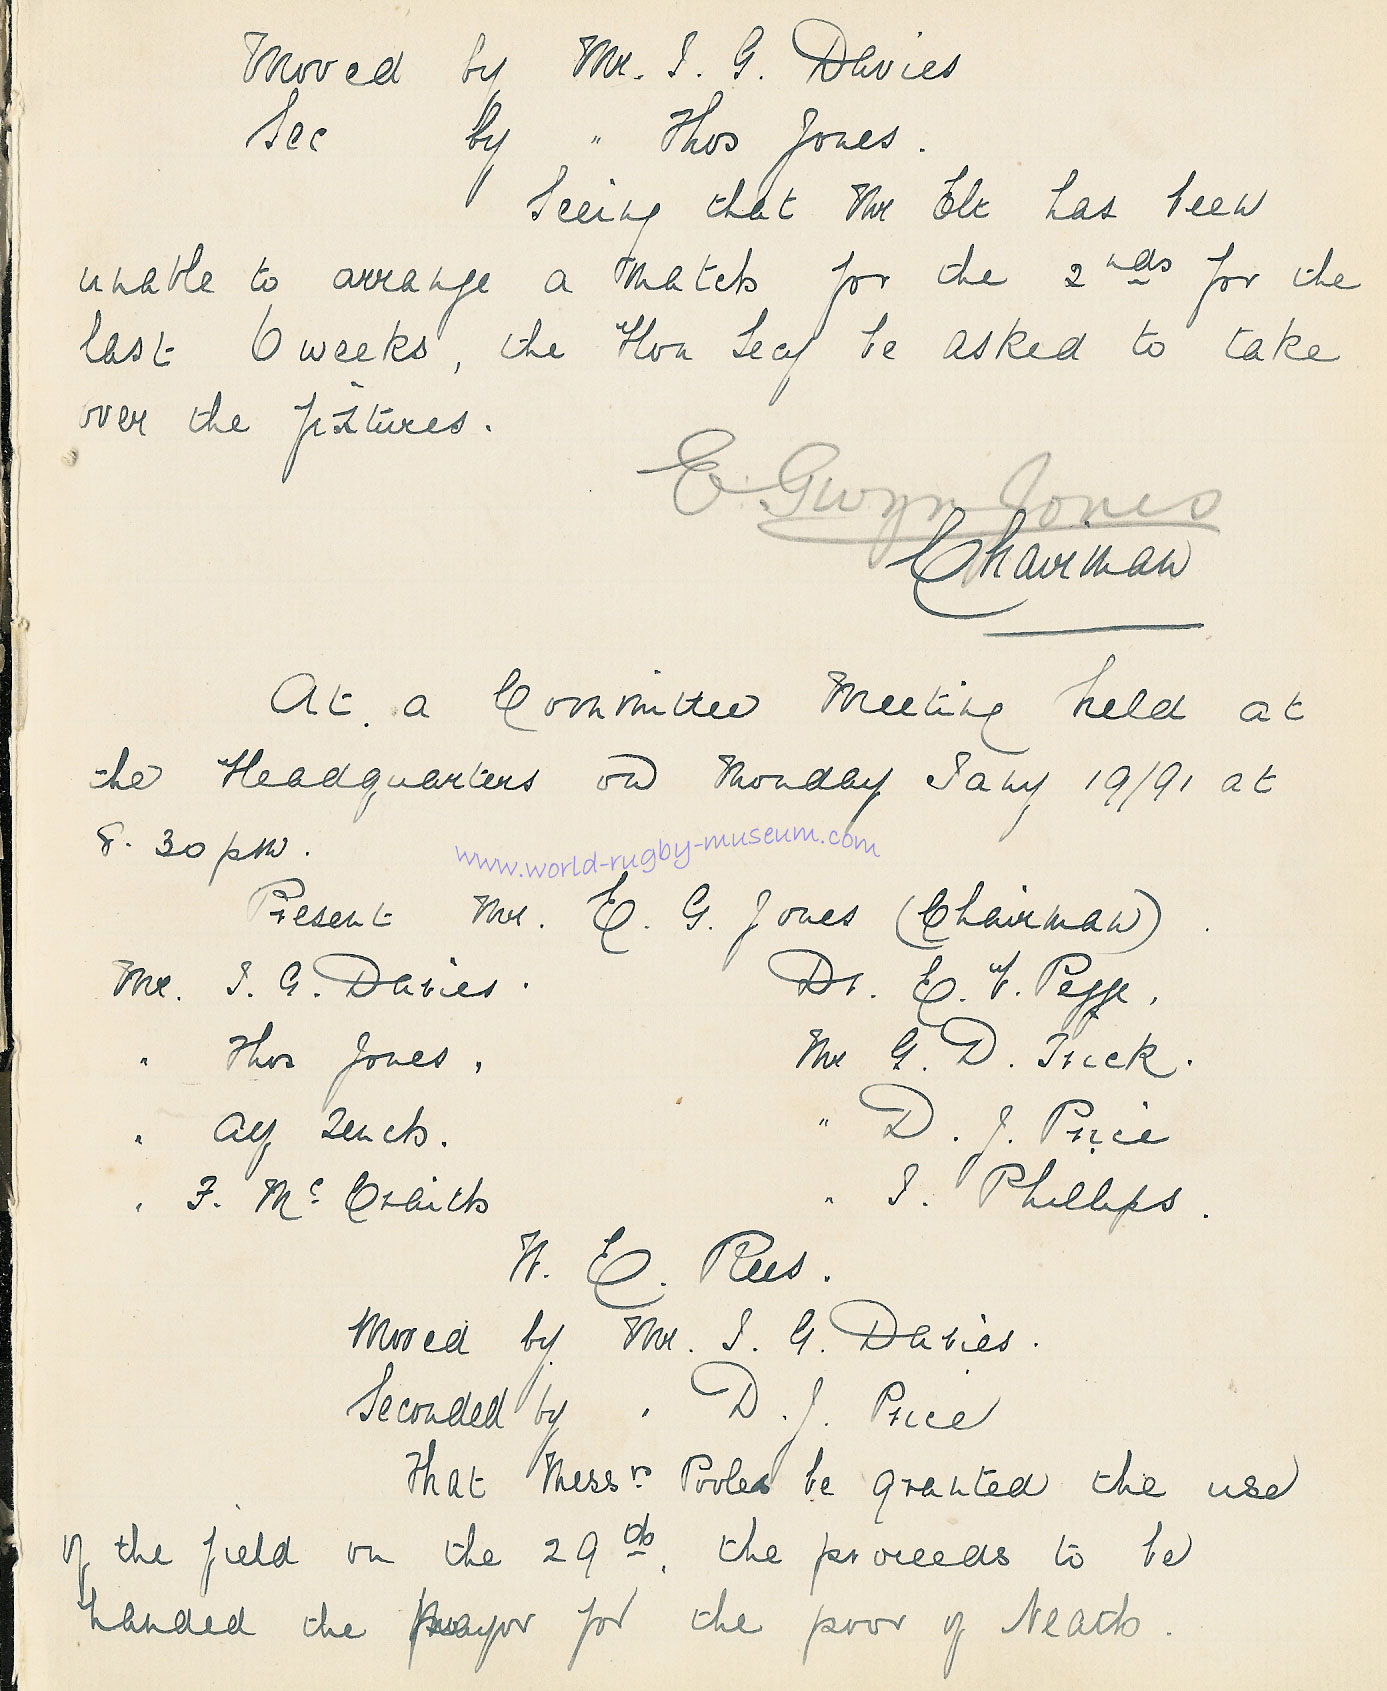 Moved by Mr. I. G. Davies
Sec by " Thos Jones.
Seeing that Mr Elt has been
unable to arrange a match for the 2nds for the
last 6 weeks, the Hon Secy be asked to take
over the fixtures.
E. Gwyn Jones
Chairman
At a Committee Meeting held at
the Headquarters on Monday Jany 19/91 at
8.30 pm.
www.world-rugby-museum.com
Present Mr. E. G. Jones (Chairman).
Mr. I. G. Davies. Dr. E. V. Pegge,
" Thos Jones, Mr G. D. Trick.
" Alf Zench. " D. J. Price
" F. Mc Craith " I. Phillips.
W. E. Rees.
Moved by Mr. I. G. Davies.
Seconded by " D. J. Price
That Messrs Pooles be granted the use
of the field on the 29th, the proceeds to be
handed the mayor for the poor of Neath.